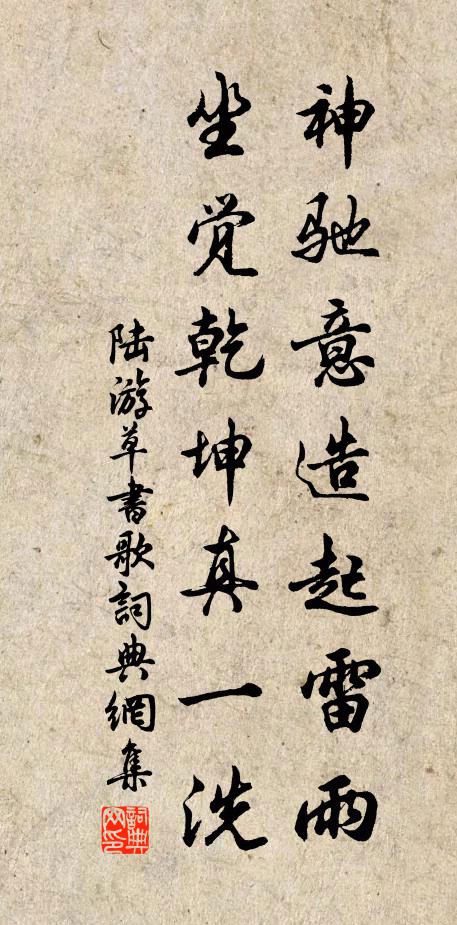 神驰意造起雷雨
坐觉乾坤真一洗
陆游草書歌詞典網集
詞典网印